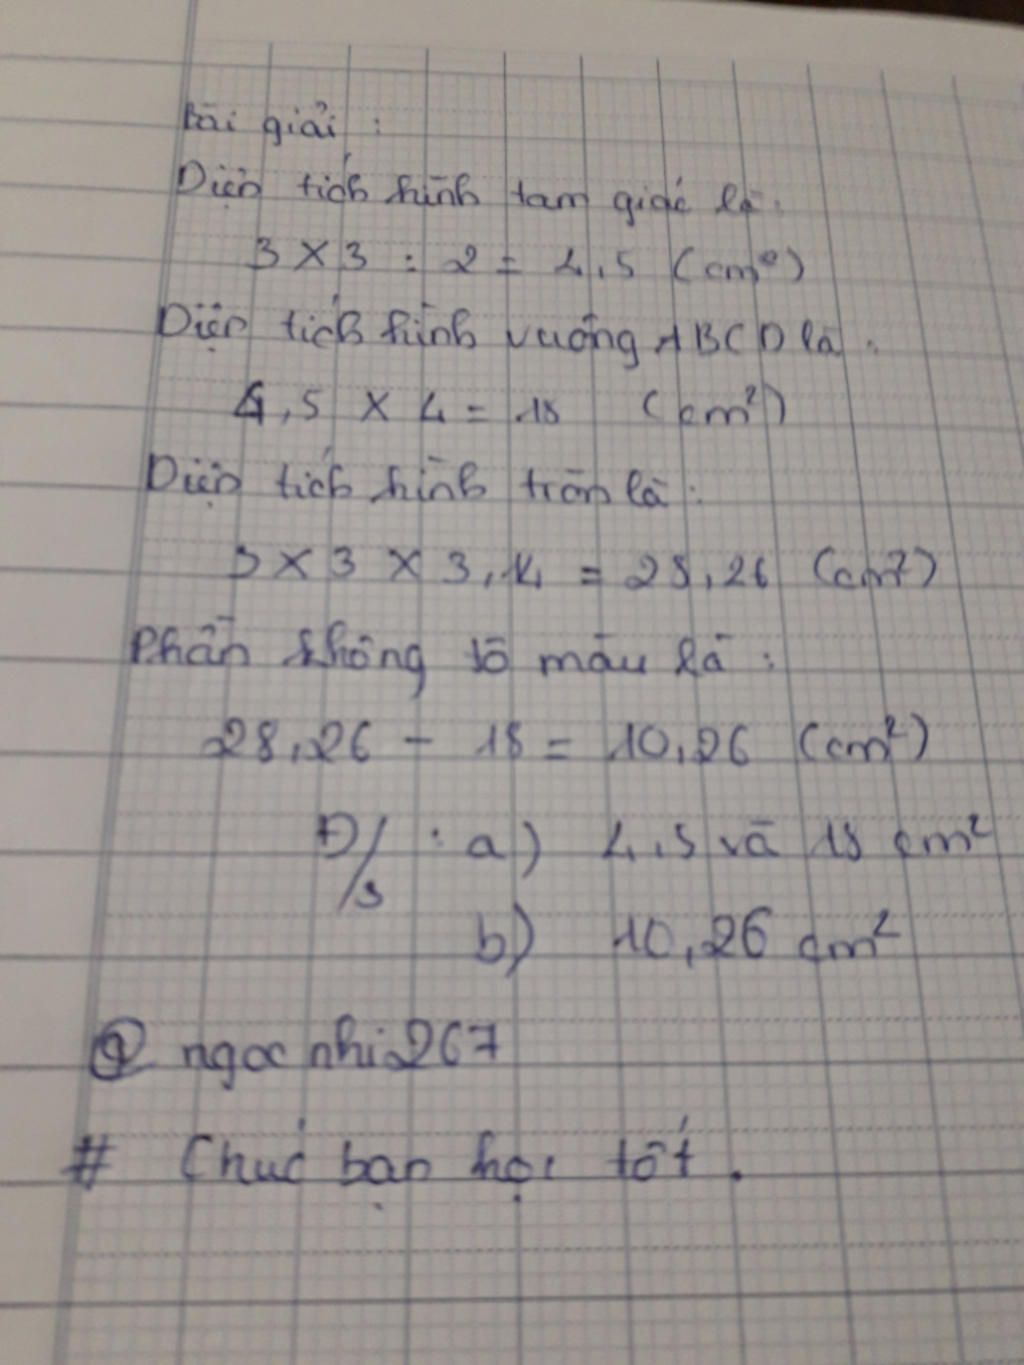 Bài giải :
Diện tích hình tam giác là :
3 × 3 : 2 = 4,5 (cm²)
Diện tích hình vuông ABCD là :
4,5 × 4 = 18 (cm²)
Diện tích hình tròn là :
3 × 3 × 3,14 = 28,26 (cm²)
Phần không tô màu là :
28,26 - 18 = 10,26 (cm²)
Đ/s : a) 4,5 và 18 cm²
b) 10,26 cm²
@ ngoc nhi267
# Chúc bạn học tốt .